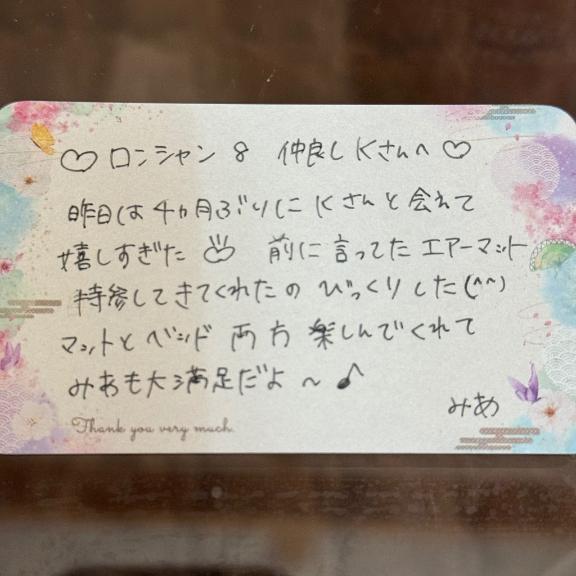 ♡ ロンシャン 8 仲良し Kさんへ ♡
昨日は 4ヵ月ぶりに Kさんと 会えて
嬉しすぎた 前に言ってた エアーマット
持参してきてくれたの びっくりした(^^)
マットとベッド 両方 楽しんでくれて
みあも大満足だよ ～ ♪
みあ
Thank you very much.